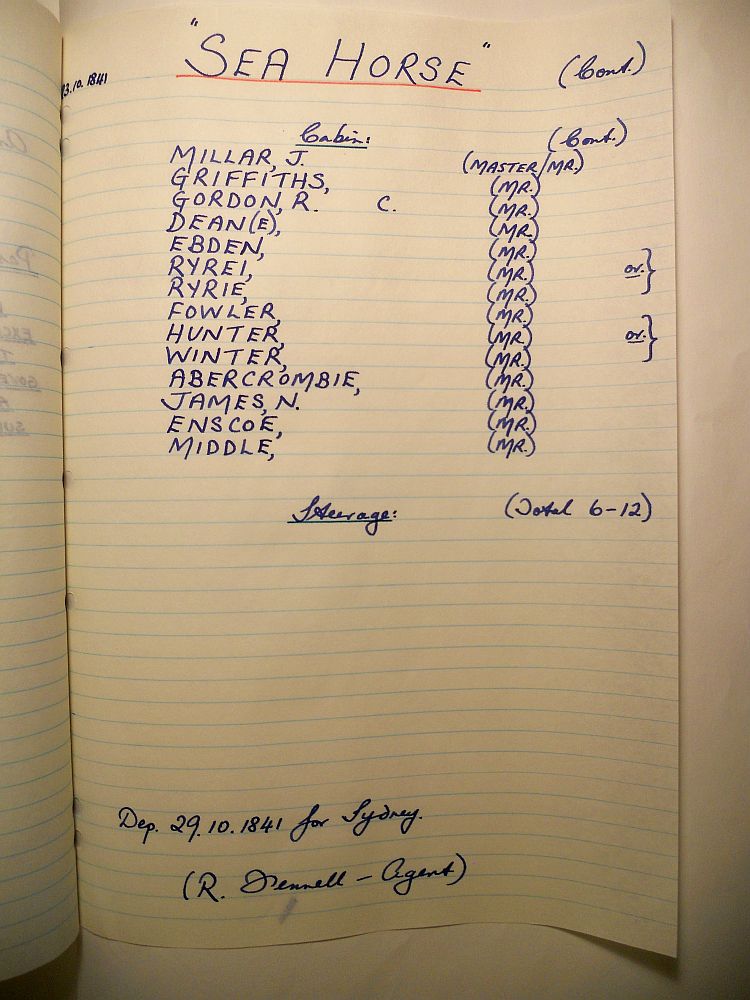 "SEA HORSE" (Cont.)
23.10.1841
Cabin: (Cont.)
MILLAR, J. (MASTER/MR.)
GRIFFITHS, (MR.)
GORDON, R. C. (MR.)
DEAN(E), (MR.)
EBDEN, (MR.)
RYREI, (MR.) or }
RYRIE, (MR.)
FOWLER, (MR.)
HUNTER, (MR.) or }
WINTER, (MR.)
ABERCROMBIE, (MR.)
JAMES, N. (MR.)
ENSCOE, (MR.)
MIDDLE, (MR.)
Steerage: (Total 6-12)
Dep. 29.10.1841 for Sydney.
(R. Dennell - Agent)